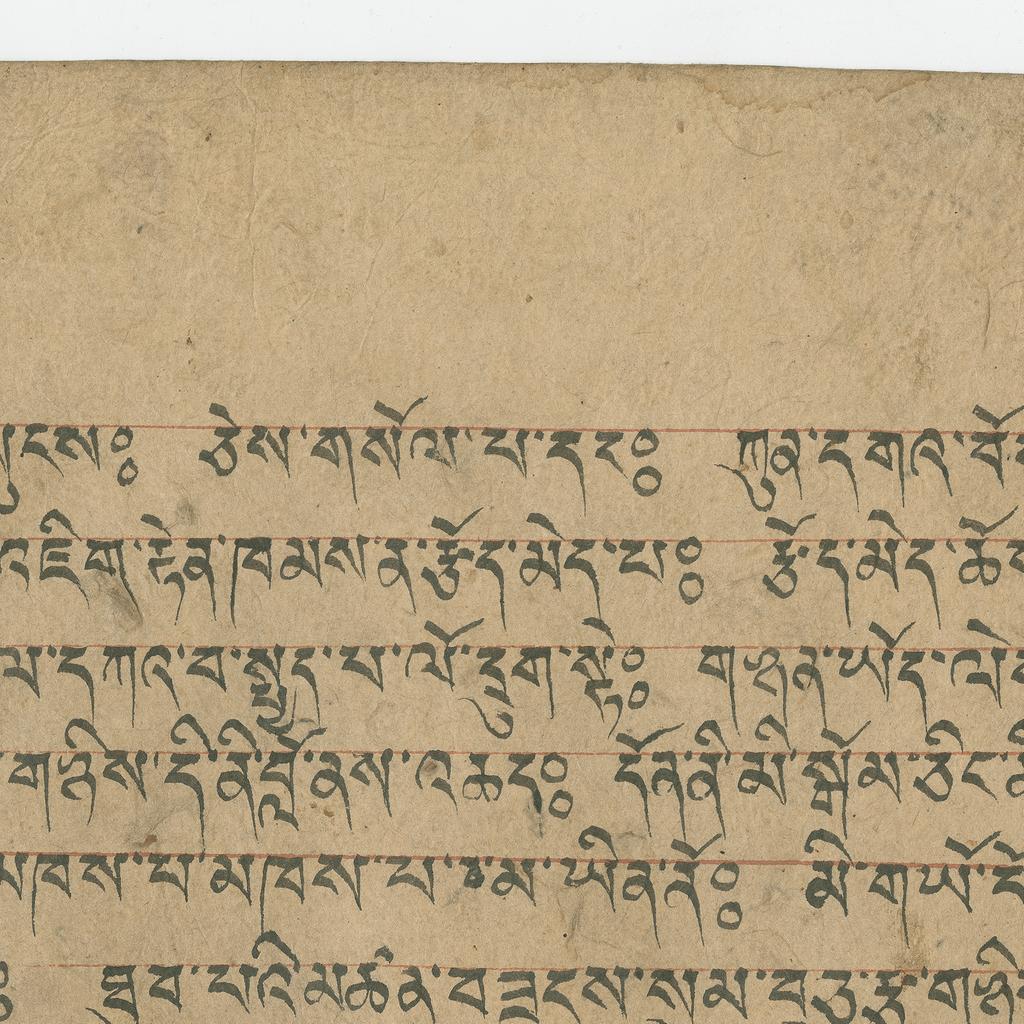 ངས༔ ཅེས་གསོལ་པ་དང༔ ཀུན་དགའ་བོ
འཇིག་རྟེན་ཁམས་ན་རྩོད་མེད་པ༔ རྩོད་མེད་ཆོ
ལ་དཀར་བ་སྤྱད་པ་ལོ་དྲུག་སྟེ༔ གཉན་ཡོད་ལེ
གཉིས་ད་ནི་བློ་ནས་འཆད༔ དོན་ནི་མི་སྒོམ་ཅིང
མཁས་པ་མཁས་པ་མ་ཡིན་ནོ༔ མི་གཡོ
གྲུབ་པའི་མཚན་བཟངས་སམ་བཅུ་རྩ་གཉི